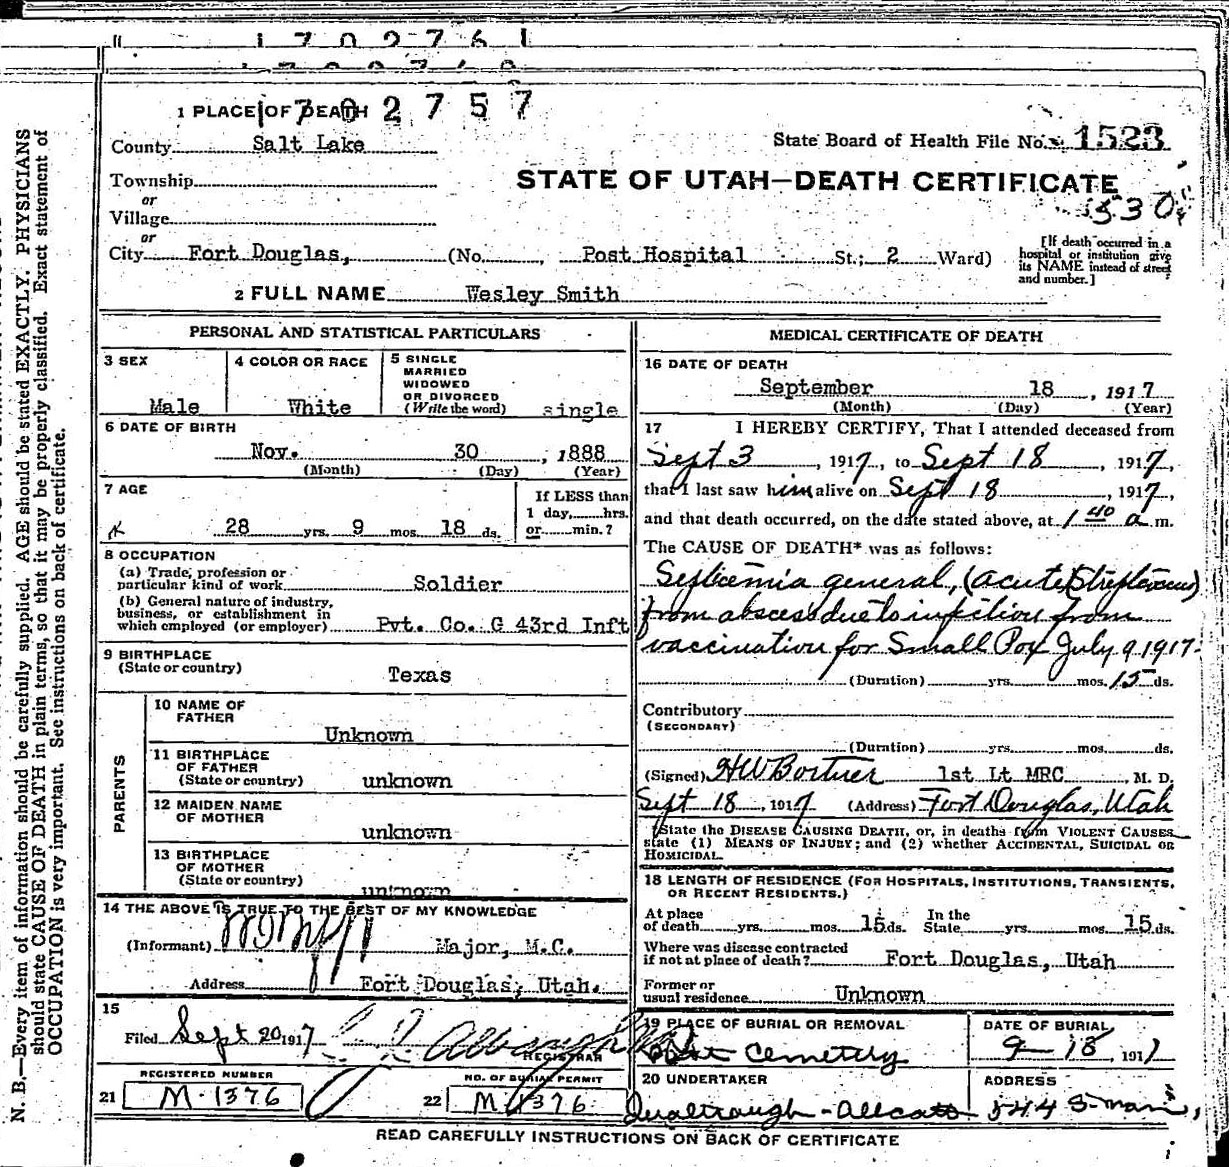 1 7 0 2 7 6 1
1 7 0 2 7 5 7
1 PLACE OF DEATH
County Salt Lake
State Board of Health File No. 1523
Township
or
STATE OF UTAH—DEATH CERTIFICATE
Village
or
City Fort Douglas, (No. , Post Hospital St.; 2 Ward)
[If death occurred in a hospital or institution give its NAME instead of street and number.]
2 FULL NAME Wesley Smith
PERSONAL AND STATISTICAL PARTICULARS
3 SEX
Male
4 COLOR OR RACE
White
5 SINGLE
MARRIED
WIDOWED
OR DIVORCED
(Write the word) single
6 DATE OF BIRTH
Nov. 30 , 1888
(Month) (Day) (Year)
7 AGE
28 yrs. 9 mos. 18 ds.
If LESS than
1 day, hrs.
or min.?
8 OCCUPATION
(a) Trade, profession or
particular kind of work Soldier
(b) General nature of industry,
business, or establishment in
which employed (or employer) Pvt. Co. G 43rd Inft
9 BIRTHPLACE
(State or country) Texas
PARENTS
10 NAME OF
FATHER Unknown
11 BIRTHPLACE
OF FATHER
(State or country) unknown
12 MAIDEN NAME
OF MOTHER unknown
13 BIRTHPLACE
OF MOTHER
(State or country) unknown
14 THE ABOVE IS TRUE TO THE BEST OF MY KNOWLEDGE
(Informant) Major, M.C.
Address Fort Douglas, Utah.
15
Filed Sept 20 1917
REGISTRAR
REGISTERED NUMBER
21 M-1376
NO. OF BURIAL PERMIT
22 M 1376
MEDICAL CERTIFICATE OF DEATH
16 DATE OF DEATH
September 18 , 1917
(Month) (Day) (Year)
17 I HEREBY CERTIFY, That I attended deceased from
Sept 3 , 1917, to Sept 18 , 1917,
that I last saw him alive on Sept 18 , 1917,
and that death occurred, on the date stated above, at 1 40 a m.
The CAUSE OF DEATH* was as follows:
Septicemia general, (acute, Streptococcus)
from abscess due to infection from
vaccination for Small Pox July 9 1917.
(Duration) yrs. mos. 15 ds.
Contributory
(SECONDARY)
(Duration) yrs. mos. ds.
(Signed) HW Bortner 1st Lt MRC , M. D.
Sept 18, 1917 (Address) Fort Douglas, Utah
*State the DISEASE CAUSING DEATH, or, in deaths from VIOLENT CAUSES
state (1) MEANS OF INJURY; and (2) whether ACCIDENTAL, SUICIDAL OR
HOMICIDAL.
18 LENGTH OF RESIDENCE (FOR HOSPITALS, INSTITUTIONS, TRANSIENTS,
OR RECENT RESIDENTS.)
At place
of death yrs. mos. 15 ds. In the
State yrs. mos. 15 ds.
Where was disease contracted
if not at place of death? Fort Douglas, Utah
Former or
usual residence Unknown
19 PLACE OF BURIAL OR REMOVAL
Post Cemetery
DATE OF BURIAL
9-18, 1917
20 UNDERTAKER
ADDRESS
544 S-Main,
READ CAREFULLY INSTRUCTIONS ON BACK OF CERTIFICATE
N. B.—Every item of information should be carefully supplied. AGE should be stated EXACTLY. PHYSICIANS
should state CAUSE OF DEATH in plain terms, so that it may be properly classified. Exact statement of
OCCUPATION is very important. See instructions on back of certificate.